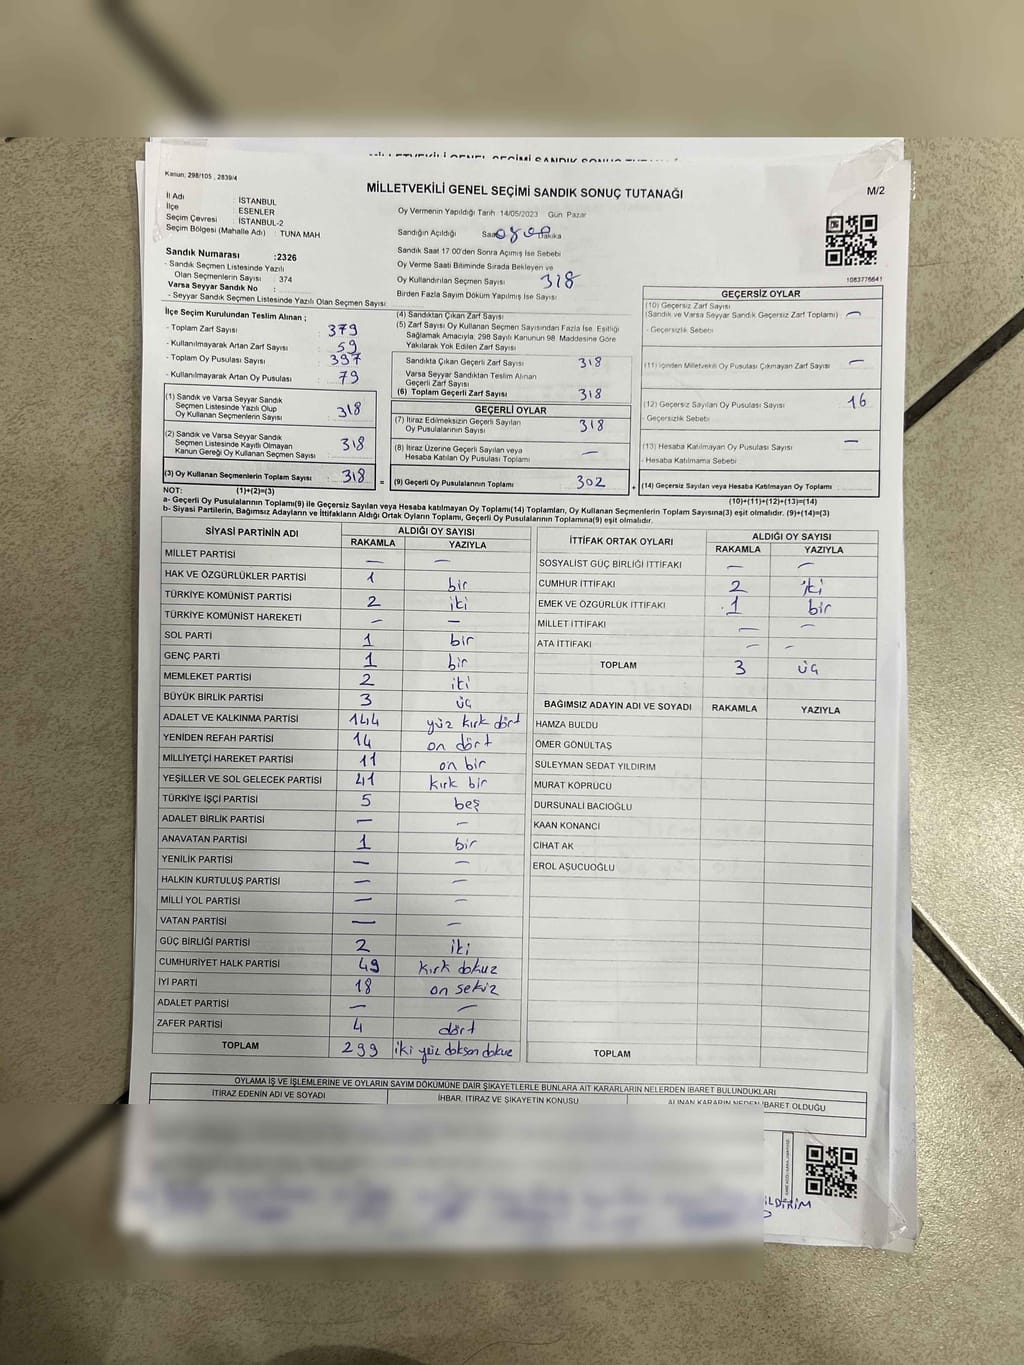 Kanun; 298/105 , 2839/4
MİLLETVEKİLİ GENEL SEÇİMİ SANDIK SONUÇ TUTANAĞI
M/2
İl Adı : İSTANBUL
İlçe : ESENLER
Seçim Çevresi : İSTANBUL-2
Seçim Bölgesi (Mahalle Adı) : TUNA MAH
Oy Vermenin Yapıldığı Tarih: 14/05/2023 Gün: Pazar
Sandığın Açıldığı
Sandık Saat 17:00'den Sonra Açımış İse Sebebi
Oy Verme Saati Bitiminde Sırada Bekleyen ve
Oy Kullandırılan Seçmen Sayısı 318
Birden Fazla Sayım Döküm Yapılmış İse Sayısı
1083776641
Sandık Numarası :2326
- Sandık Seçmen Listesinde Yazılı
Olan Seçmenlerin Sayısı : 374
Varsa Seyyar Sandık No :
- Seyyar Sandık Seçmen Listesinde Yazılı Olan Seçmen Sayısı
İlçe Seçim Kurulundan Teslim Alınan ;
- Toplam Zarf Sayısı : 379
- Kullanılmayarak Artan Zarf Sayısı : 59
- Toplam Oy Pusulası Sayısı : 397
- Kullanılmayarak Artan Oy Pusulası : 79
(1) Sandık ve Varsa Seyyar Sandık
Seçmen Listesinde Yazılı Olup
Oy Kullanan Seçmenlerin Sayısı : 318
(2) Sandık ve Varsa Seyyar Sandık
Seçmen Listesinde Kayıtlı Olmayan
Kanun Gereği Oy Kullanan Seçmen Sayısı : 318
(3) Oy Kullanan Seçmenlerin Toplam Sayısı : 318
(4) Sandıktan Çıkan Zarf Sayısı
(5) Zarf Sayısı Oy Kullanan Seçmen Sayısından Fazla İse, Eşitliği
Sağlamak Amacıyla, 298 Sayılı Kanunun 98. Maddesine Göre
Yakılarak Yok Edilen Zarf Sayısı
Sandıkta Çıkan Geçerli Zarf Sayısı 318
Varsa Seyyar Sandıktan Teslim Alınan
Geçerli Zarf Sayısı
(6) Toplam Geçerli Zarf Sayısı 318
GEÇERLİ OYLAR
(7) İtiraz Edilmeksizin Geçerli Sayılan
Oy Pusulalarının Sayısı 318
(8) İtiraz Üzerine Geçerli Sayılan veya
Hesaba Katılan Oy Pusulası Toplamı —
= (9) Geçerli Oy Pusulalarının Toplamı 302
GEÇERSİZ OYLAR
(10) Geçersiz Zarf Sayısı
(Sandık ve Varsa Seyyar Sandık Geçersiz Zarf Toplamı) —
- Geçersizlik Sebebi
(11) İçinden Milletvekili Oy Pusulası Çıkmayan Zarf Sayısı —
(12) Geçersiz Sayılan Oy Pusulası Sayısı 16
- Geçersizlik Sebebi
(13) Hesaba Katılmayan Oy Pusulası Sayısı —
- Hesaba Katılmama Sebebi
+ (14) Geçersiz Sayılan veya Hesaba Katılmayan Oy Toplamı
NOT: (1)+(2)=(3)
(10)+(11)+(12)+(13)=(14)
a- Geçerli Oy Pusulalarının Toplamı(9) ile Geçersiz Sayılan veya Hesaba Katılmayan Oy Toplamı(14) Toplamları, Oy Kullanan Seçmenlerin Toplam Sayısına(3) eşit olmalıdır. (9)+(14)=(3)
b- Siyasi Partilerin, Bağımsız Adayların ve İttifakların Aldığı Ortak Oyların Toplamı, Geçerli Oy Pusulalarının Toplamına(9) eşit olmalıdır.
SİYASİ PARTİNİN ADI ALDIĞI OY SAYISI
RAKAMLA YAZIYLA
MİLLET PARTİSİ — —
HAK VE ÖZGÜRLÜKLER PARTİSİ 1 bir
TÜRKİYE KOMÜNİST PARTİSİ 2 iki
TÜRKİYE KOMÜNİST HAREKETİ — —
SOL PARTİ 1 bir
GENÇ PARTİ 1 bir
MEMLEKET PARTİSİ 2 iki
BÜYÜK BİRLİK PARTİSİ 3 üç
ADALET VE KALKINMA PARTİSİ 144 yüz kırk dört
YENİDEN REFAH PARTİSİ 14 on dört
MİLLİYETÇİ HAREKET PARTİSİ 11 on bir
YEŞİLLER VE SOL GELECEK PARTİSİ 41 kırk bir
TÜRKİYE İŞÇİ PARTİSİ 5 beş
ADALET BİRLİK PARTİSİ — —
ANAVATAN PARTİSİ 1 bir
YENİLİK PARTİSİ — —
HALKIN KURTULUŞ PARTİSİ — —
MİLLİ YOL PARTİSİ — —
VATAN PARTİSİ — —
GÜÇ BİRLİĞİ PARTİSİ 2 iki
CUMHURİYET HALK PARTİSİ 49 kırk dokuz
İYİ PARTİ 18 on sekiz
ADALET PARTİSİ — —
ZAFER PARTİSİ 4 dört
TOPLAM 299 iki yüz doksan dokuz
İTTİFAK ORTAK OYLARI ALDIĞI OY SAYISI
RAKAMLA YAZIYLA
SOSYALİST GÜÇ BİRLİĞİ İTTİFAKI — —
CUMHUR İTTİFAKI 2 iki
EMEK VE ÖZGÜRLÜK İTTİFAKI 1 bir
MİLLET İTTİFAKI — —
ATA İTTİFAKI — —
TOPLAM 3 üç
BAĞIMSIZ ADAYIN ADI VE SOYADI RAKAMLA YAZIYLA
HAMZA BULDU
ÖMER GÖNÜLTAŞ
SÜLEYMAN SEDAT YILDIRIM
MURAT KÖPRÜCÜ
DURSUNALİ BACIOĞLU
KAAN KONANCİ
CİHAT AK
EROL AŞUCUOĞLU
TOPLAM
OYLAMA İŞ VE İŞLEMLERİNE VE OYLARIN SAYIM DÖKÜMÜNE DAİR ŞİKAYETLERLE BUNLARA AİT KARARLARIN NELERDEN İBARET BULUNDUKLARI
İTİRAZ EDENİN ADI VE SOYADI İHBAR, İTİRAZ VE ŞİKAYETİN KONUSU ALINAN KARARIN NEDEN İBARET OLDUĞU